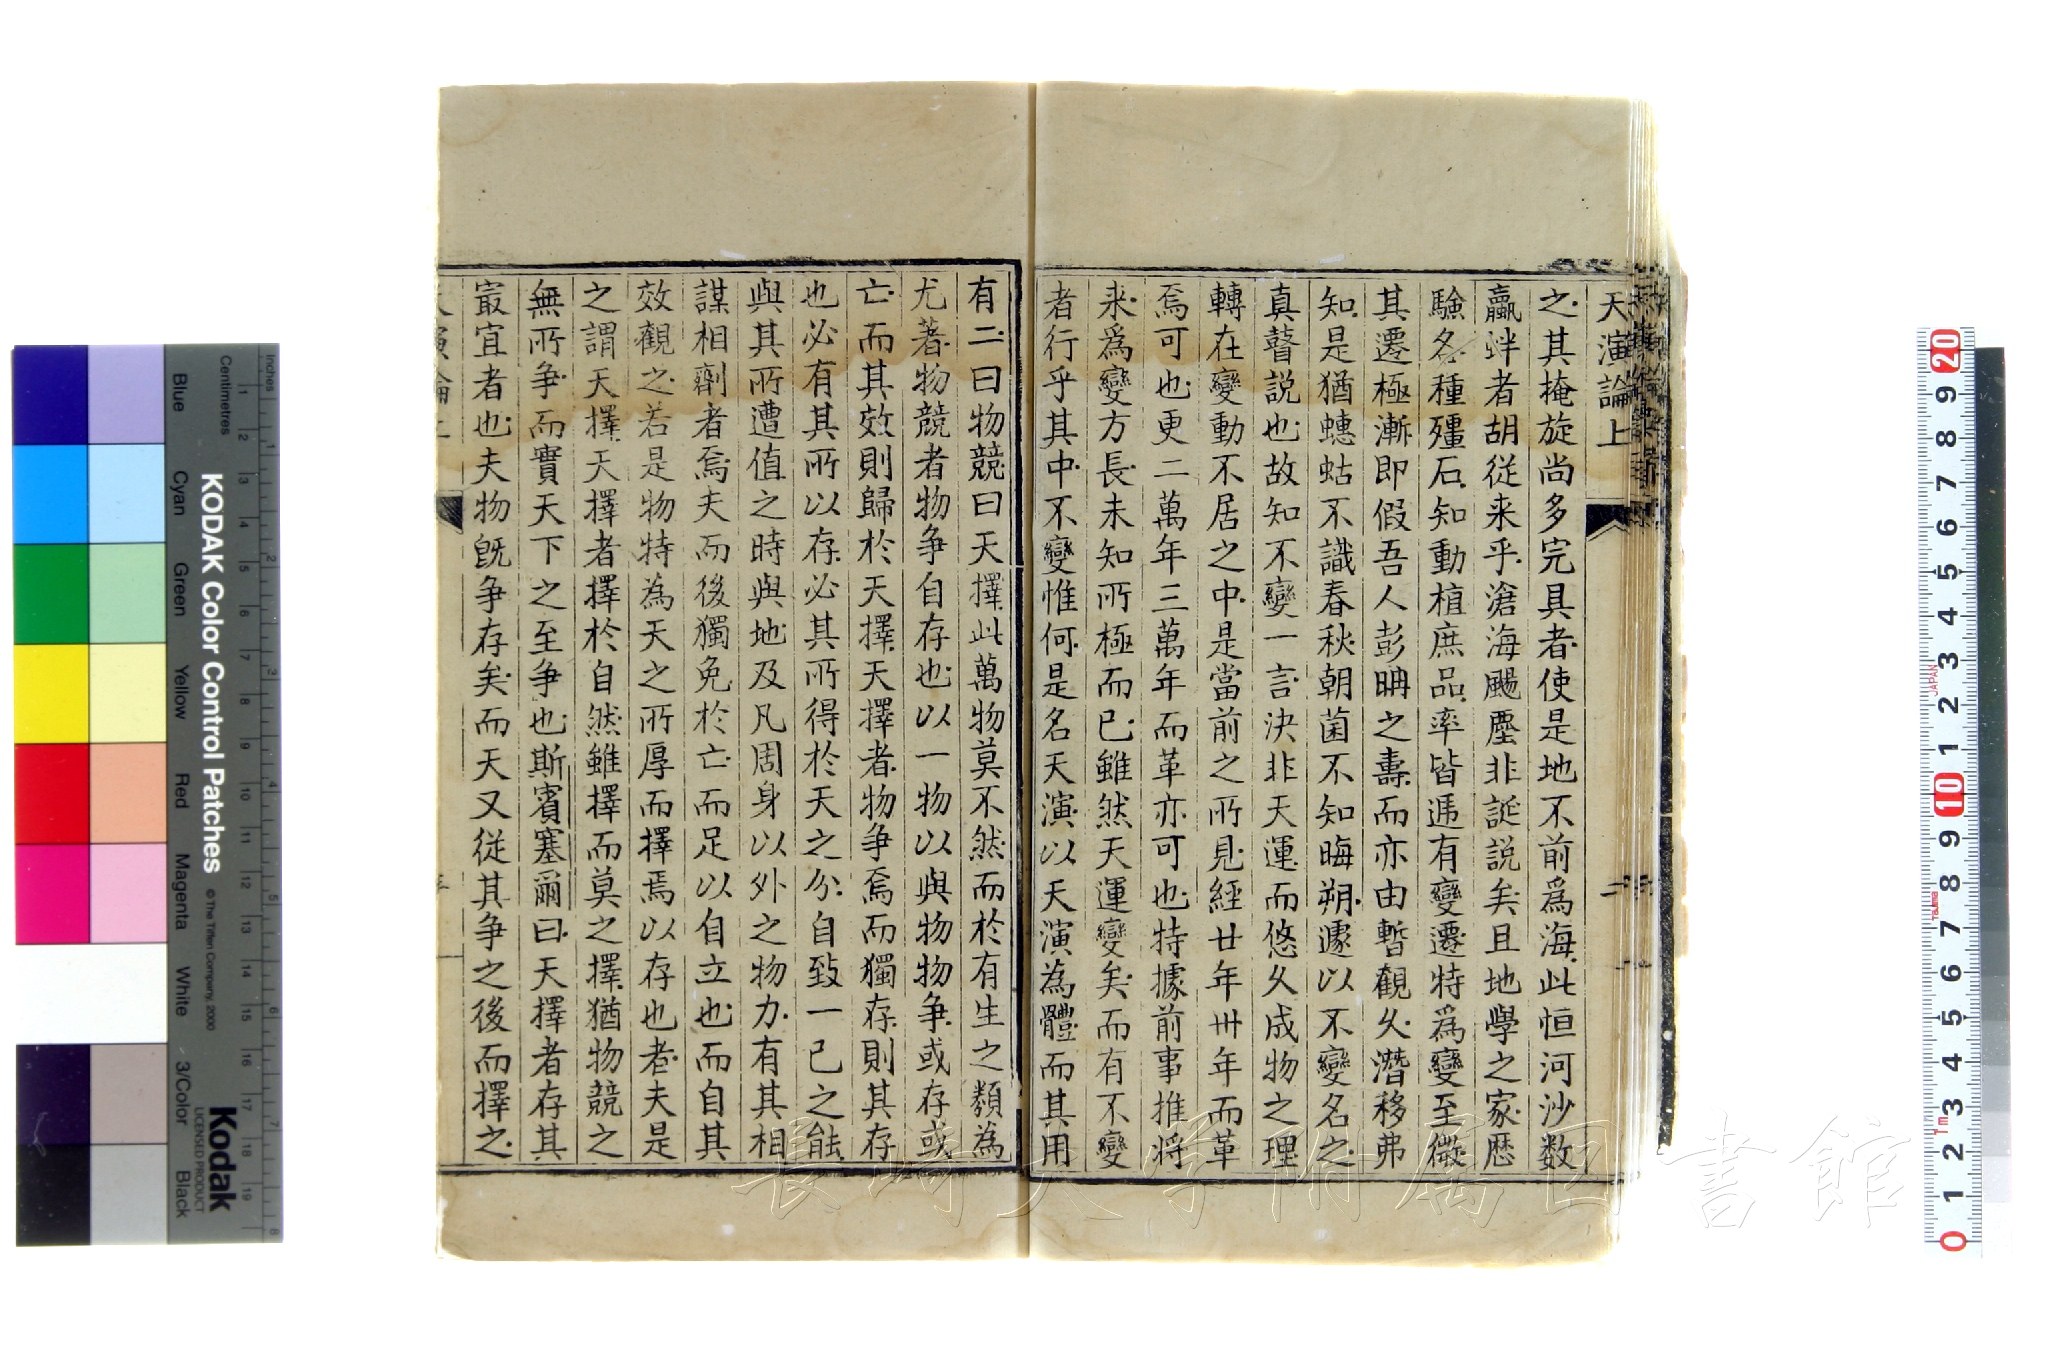 天演論上
二
之其掩旋尚多完具者使是地不前爲海此恒河沙数
蠃蚌者胡従来乎滄海颺塵非誕説矣且地學之家歴
驗各種殭石知動植庶品率皆遞有變遷特爲變至微
其遷極漸即假吾人彭聃之壽而亦由暫觀久潛移弗
知是猶蟪蛄不識春秋朝菌不知晦朔遽以不變名之
真瞽説也故知不變一言決非天運而悠久成物之理
轉在變動不居之中是當前之所見經廿年卅年而革
焉可也更二萬年三萬年而革亦可也特據前事推將
来爲變方長未知所極而已雖然天運變矣而有不變
者行乎其中不變惟何是名天演以天演為體而其用
有二曰物競曰天擇此萬物莫不然而於有生之類為
尤著物競者物争自存也以一物以與物物争或存或
亡而其效則歸於天擇天擇者物争焉而獨存則其存
也必有其所以存必其所得於天之分自致一己之能
與其所遭值之時與地及凡周身以外之物力有其相
謀相劑者焉夫而後獨免於亡而足以自立也而自其
效觀之若是物特為天之所厚而擇焉以存也者夫是
之謂天擇天擇者擇於自然雖擇而莫之擇猶物競之
無所争而實天下之至争也斯賓塞爾曰天擇者存其
最宜者也夫物既争存矣而天又従其争之後而擇之
KODAK Color Control Patches
© The Tiffen Company, 2000
Kodak
LICENSED PRODUCT
Inches
Centimetres
Blue
Cyan
Green
Yellow
Red
Magenta
White
3/Color
Black
1 2 3 4 5 6 7 8
1 2 3 4 5 6 7 8 9 10 11 12 13 14 15 16 17 18 19
20 9 8 7 6 5 4 3 2 1 10 9 8 7 6 5 4 3 2 1 0
JAPAN
長崎大学附属図書館